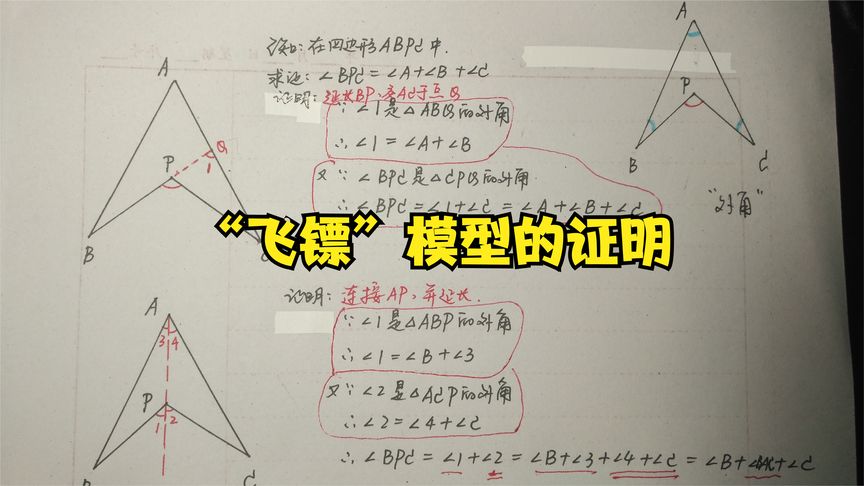 已知：在四边形ABPC中.
求证：∠BPC=∠A+∠B+∠C
证明：延长BP,交AC于点Q
∵∠1是△ABQ的外角
∴∠1=∠A+∠B
又∵∠BPC是△CPQ的外角
∴∠BPC=∠1+∠C=∠A+∠B+∠C
A
P
Q
1
B
A
P
B
C
"外角"
“飞镖”模型的证明
证明：连接AP,并延长.
∵∠1是△ABP的外角
∴∠1=∠B+∠3
又∵∠2是△ACP的外角
∴∠2=∠4+∠C
∴∠BPC=∠1+∠2=∠B+∠3+∠4+∠C=∠B+∠BAC+∠C
A
3 4
P
1 2
B
C